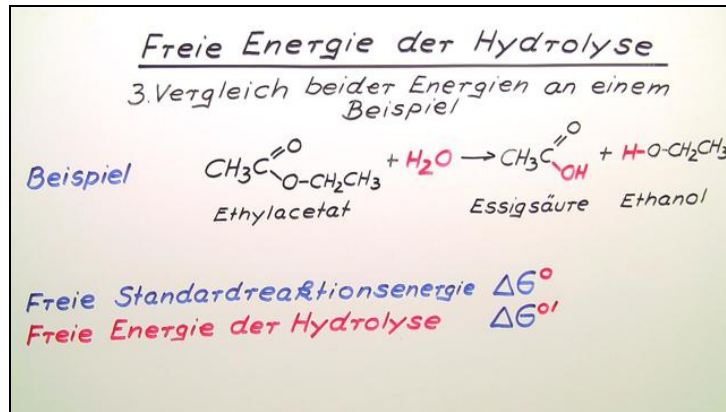 Freie Energie der Hydrolyse
3. Vergleich beider Energien an einem
Beispiel
Beispiel
CH₃C=O O-CH₂CH₃ + H₂O → CH₃C=O OH + H-O-CH₂CH₃
Ethylacetat Essigsäure Ethanol
Freie Standardreaktionsenergie ΔG°
Freie Energie der Hydrolyse ΔG°'